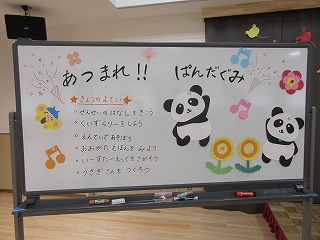 あつまれ!! ぱんだぐみ
★きょうのよてい★
せんせいのはなしをきこう
くいずらりーをしよう
えんていであそぼう
おおがたえほんをみよう
いーすたーえっぐをさがそう
うさぎさんをつくろう